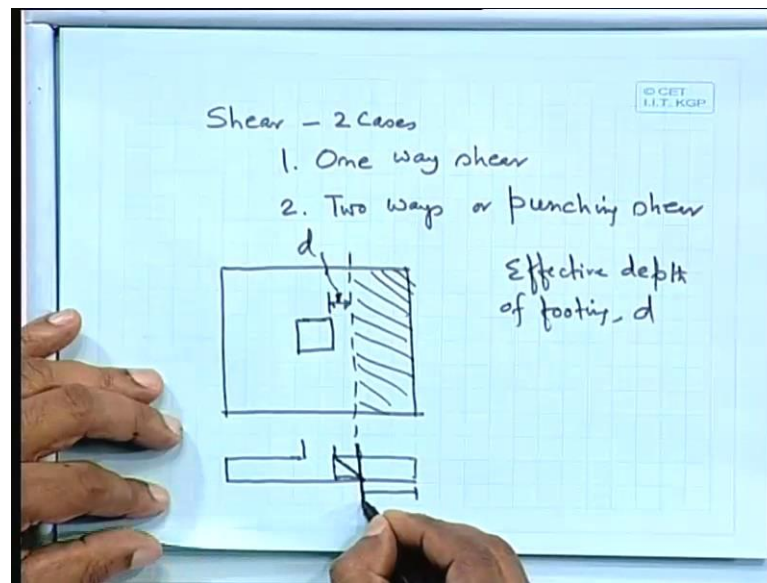 © CET
I.I.T. KGP
Shear – 2 Cases
1. One way shear
2. Two ways or punching shear
d
Effective depth
of footing, d